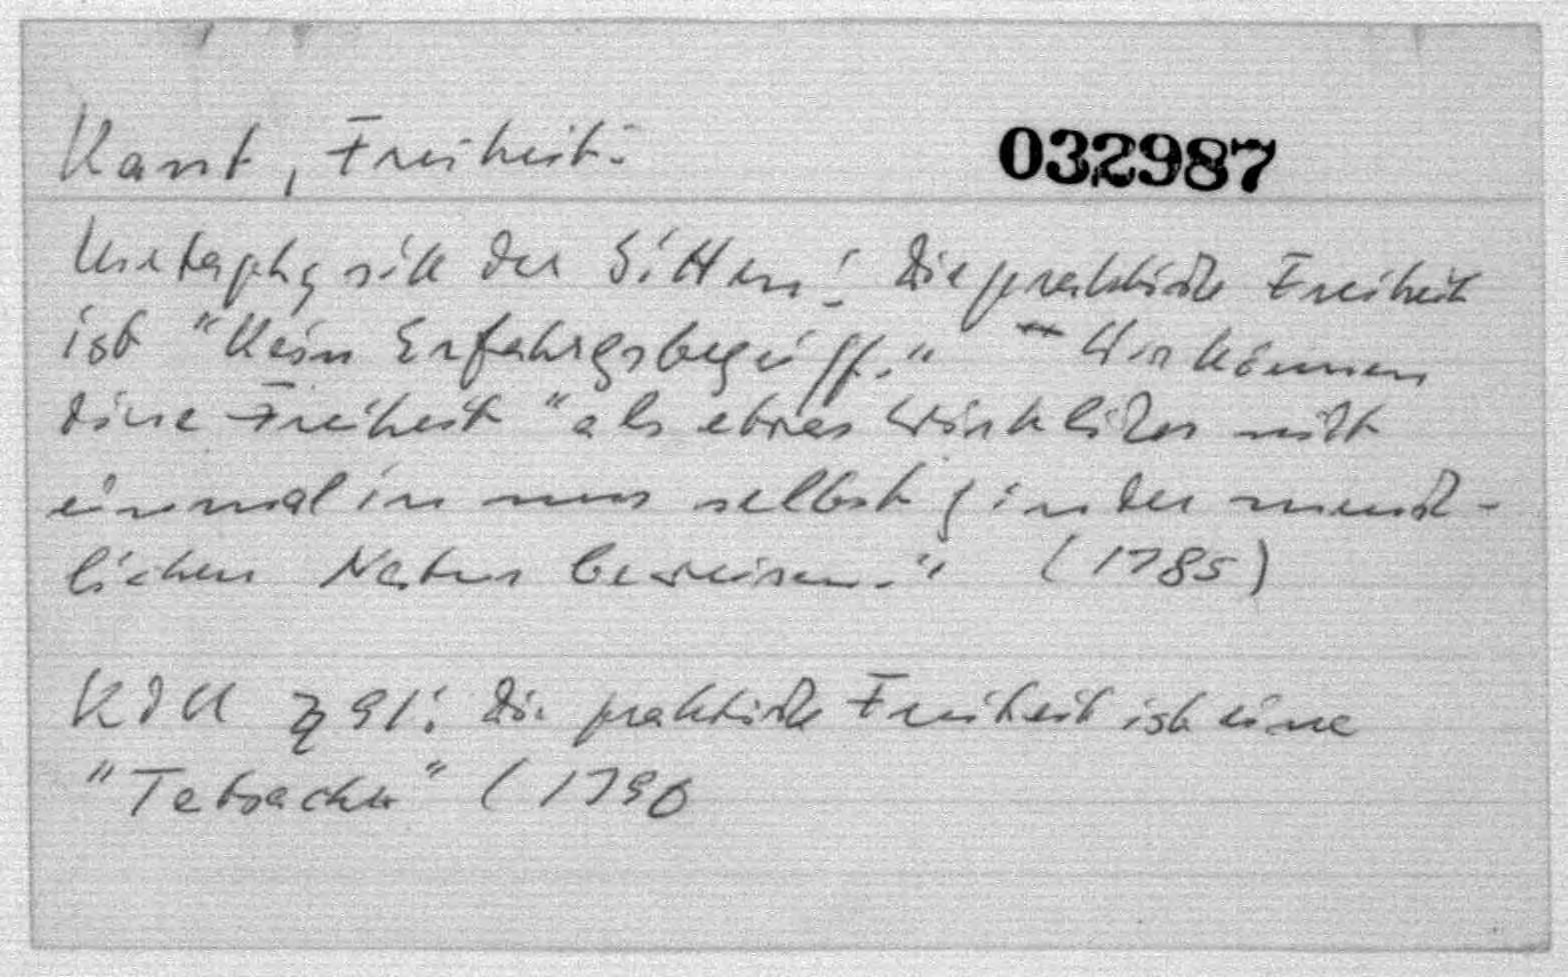 Kant, Freiheit:
032987
Metaphysik der Sitten: Die praktische Freiheit
ist "kein Erfahrgsbegriff." Wir können
diese Freiheit "als etwas Wirkliches nicht
einmal in uns selbst u in der mensch-
lichen Natur beweisen." (1785)
KdU § 91: die praktische Freiheit ist eine
"Tatsache" (1790